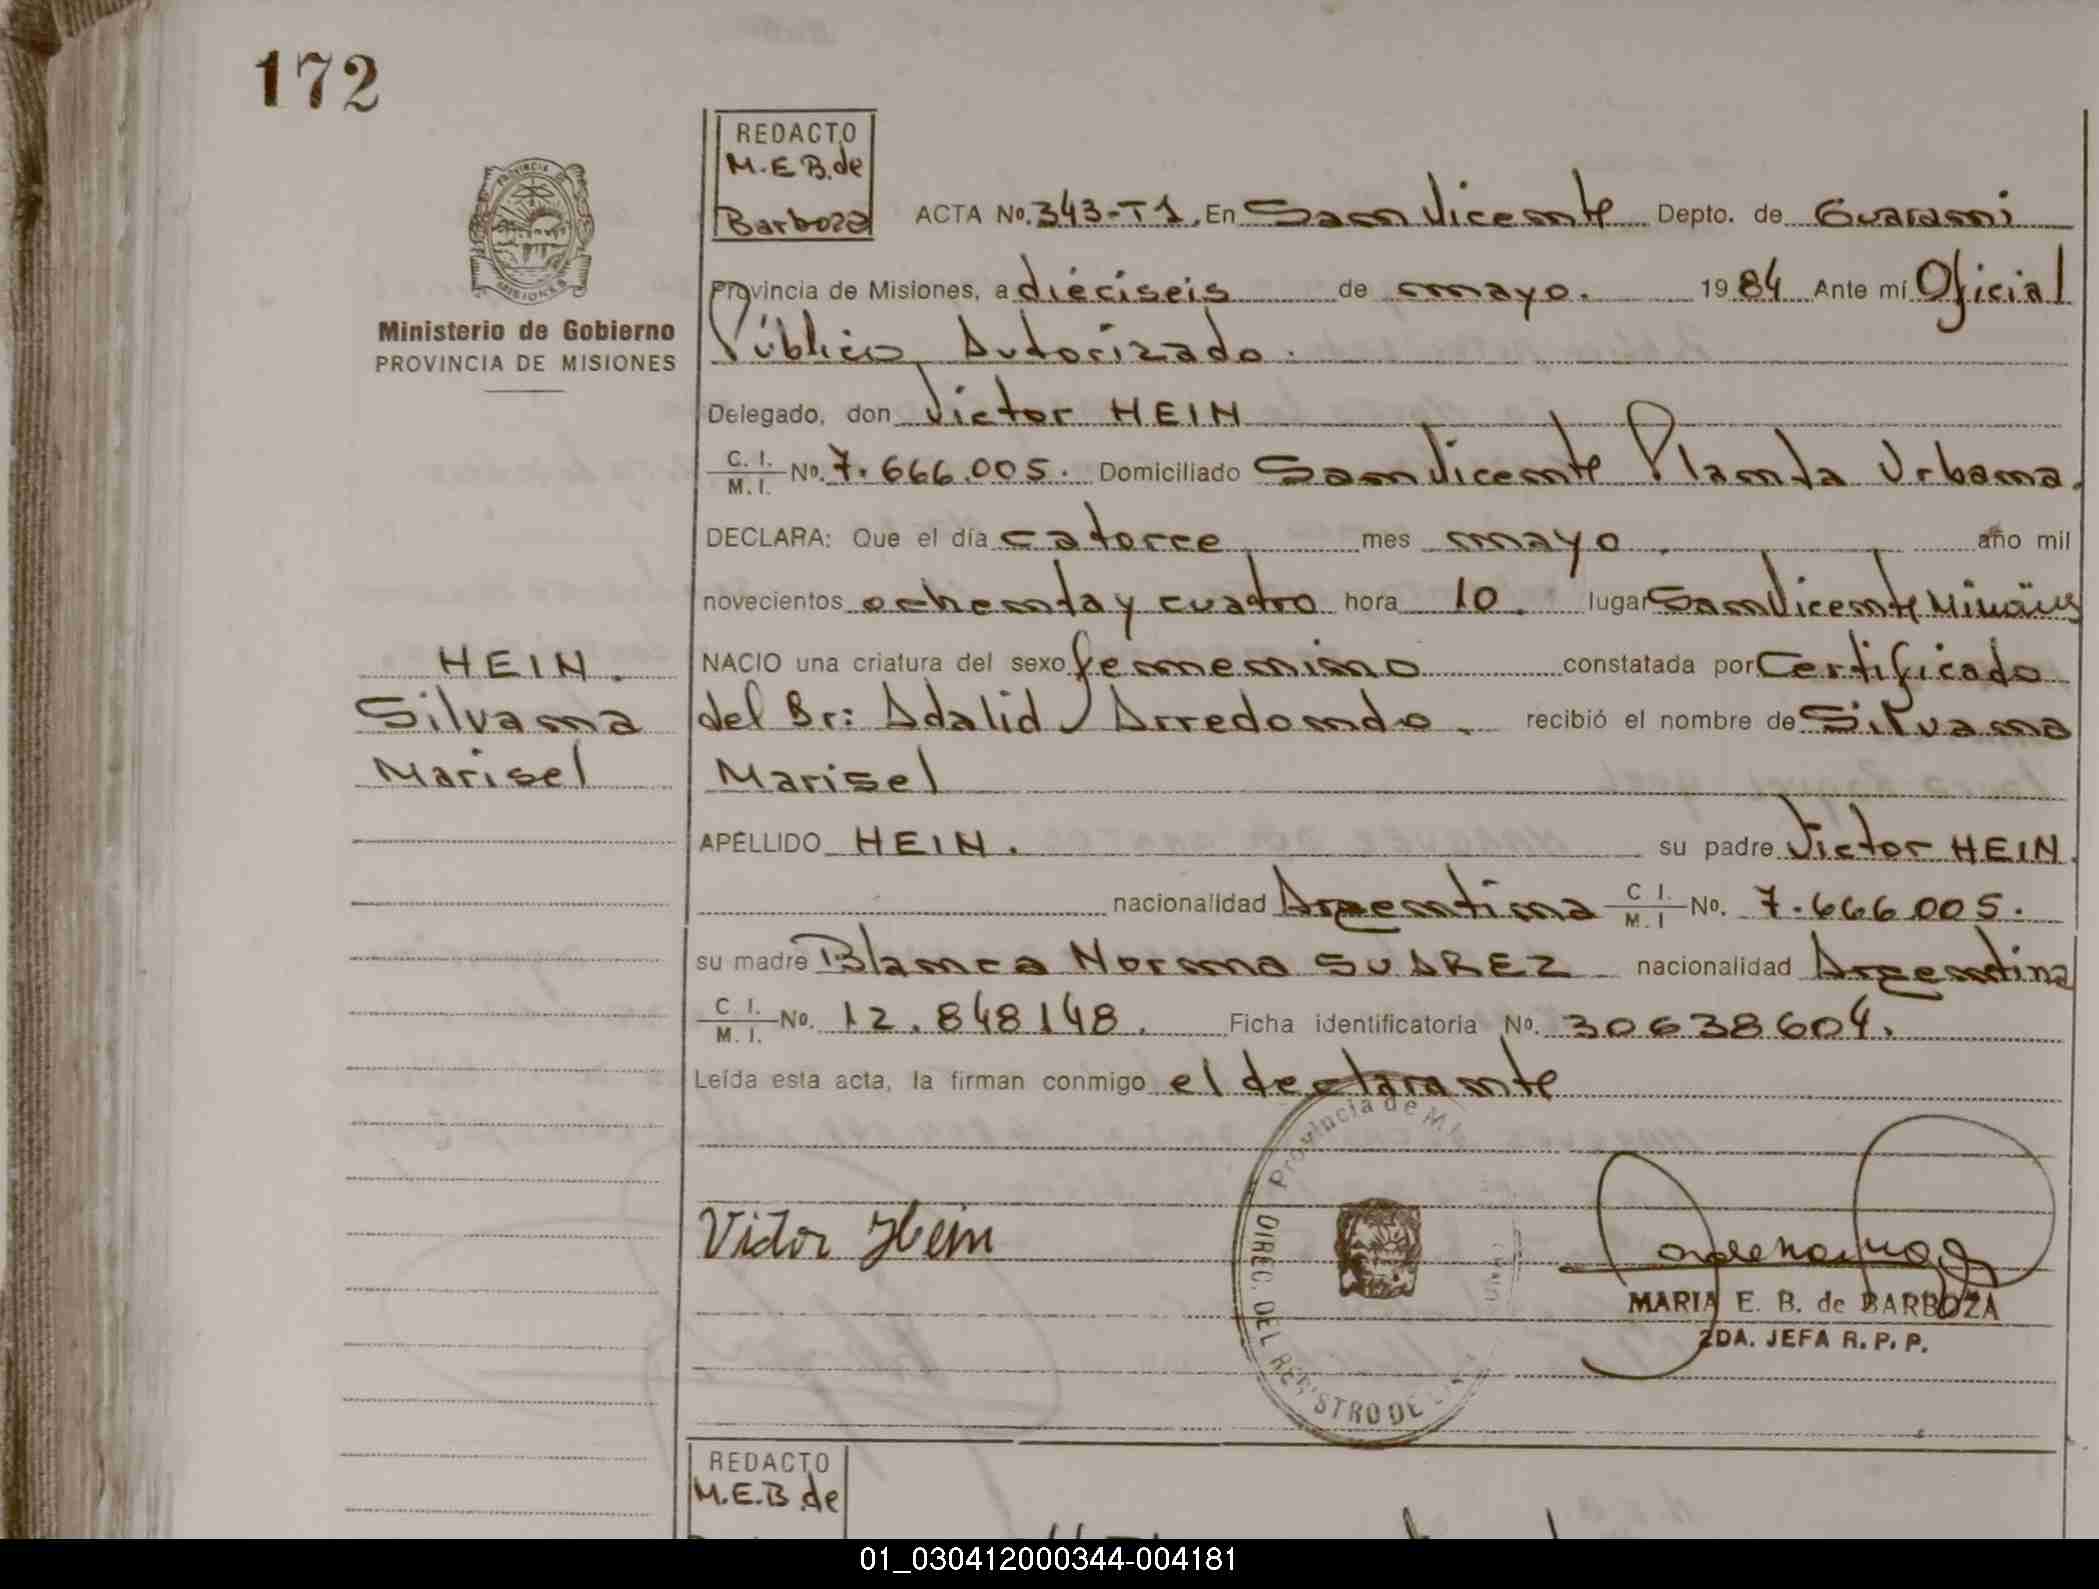 172
REDACTO
M.E B. de
Barboza
ACTA No. 343-T1. En San Vicente Depto. de Guarani
Provincia de Misiones, a dieciseis de mayo. 1984 Ante mí Oficial
Público Autorizado.
PROVINCIA DE
MISIONES
Ministerio de Gobierno
PROVINCIA DE MISIONES
Delegado, don Victor HEIN
C. I. / M. I. No. 7.666.005. Domiciliado San Vicente Planta Urbana.
DECLARA: Que el día catorce mes mayo. año mil
novecientos ochenta y cuatro hora 10. lugar San Vicente
HEIN.
Silvana
Marisel
NACIO una criatura del sexo femenino constatada por Certificado
del Br: Adalid Arredondo. recibió el nombre de Silvana
Marisel
APELLIDO HEIN. su padre Victor HEIN.
nacionalidad Argentina C I. / M. I No. 7.666.005.
su madre Blanca Norma SUAREZ nacionalidad Argentina
C I. / M. I. No. 12.848148. Ficha identificatoria No. 30638604.
Leída esta acta, la firman conmigo el declarante
Provincia de Mi
DIREC. DEL REGISTRO DE
Victor Hein
MARIA E. B. de BARBOZA
2DA. JEFA R. P. P.
REDACTO
M.E.B. de
01_030412000344-004181